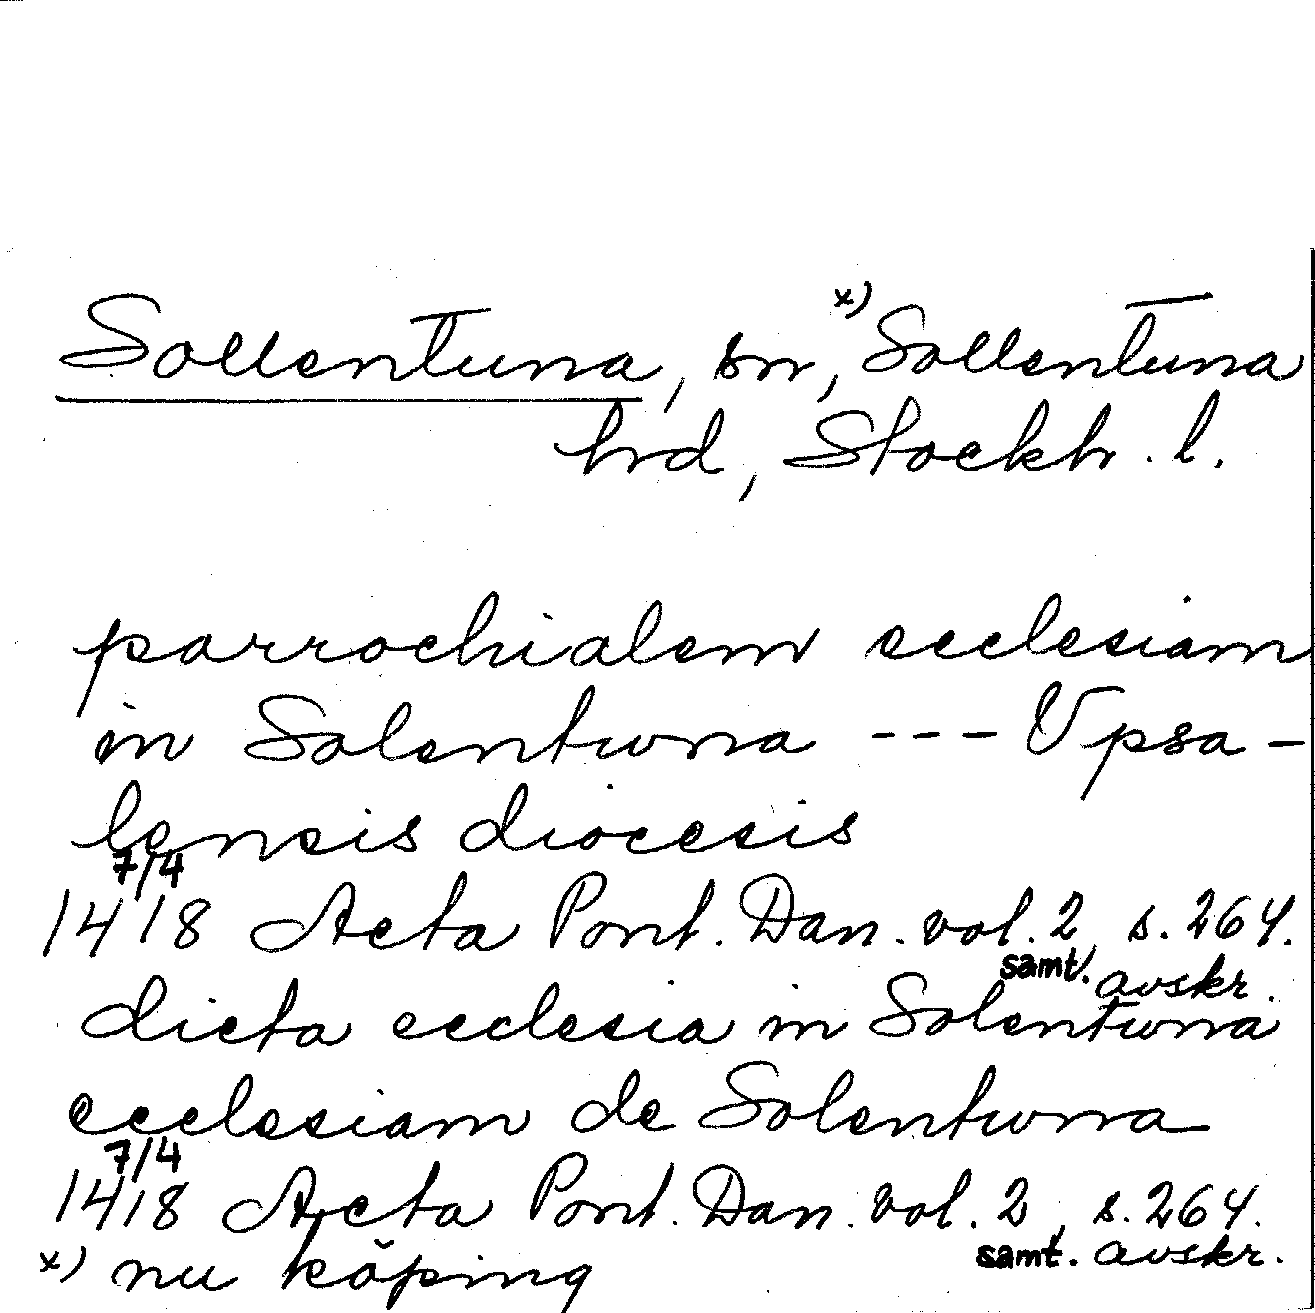 Sollentuna, sn, x) Sollentuna
hrd, Stockh. l.
parrochialem ecclesiam
in Solentwna --- Vpsa-
lensis diocesis
7/4
1418 Acta Pont. Dan. vol. 2, s. 264.
samt. avskr.
dicta ecclesia in Solentwna
ecclesiam de Solentwna
7/4
1418 Acta Pont. Dan. vol. 2, s. 264.
samt. avskr.
x) nu köping